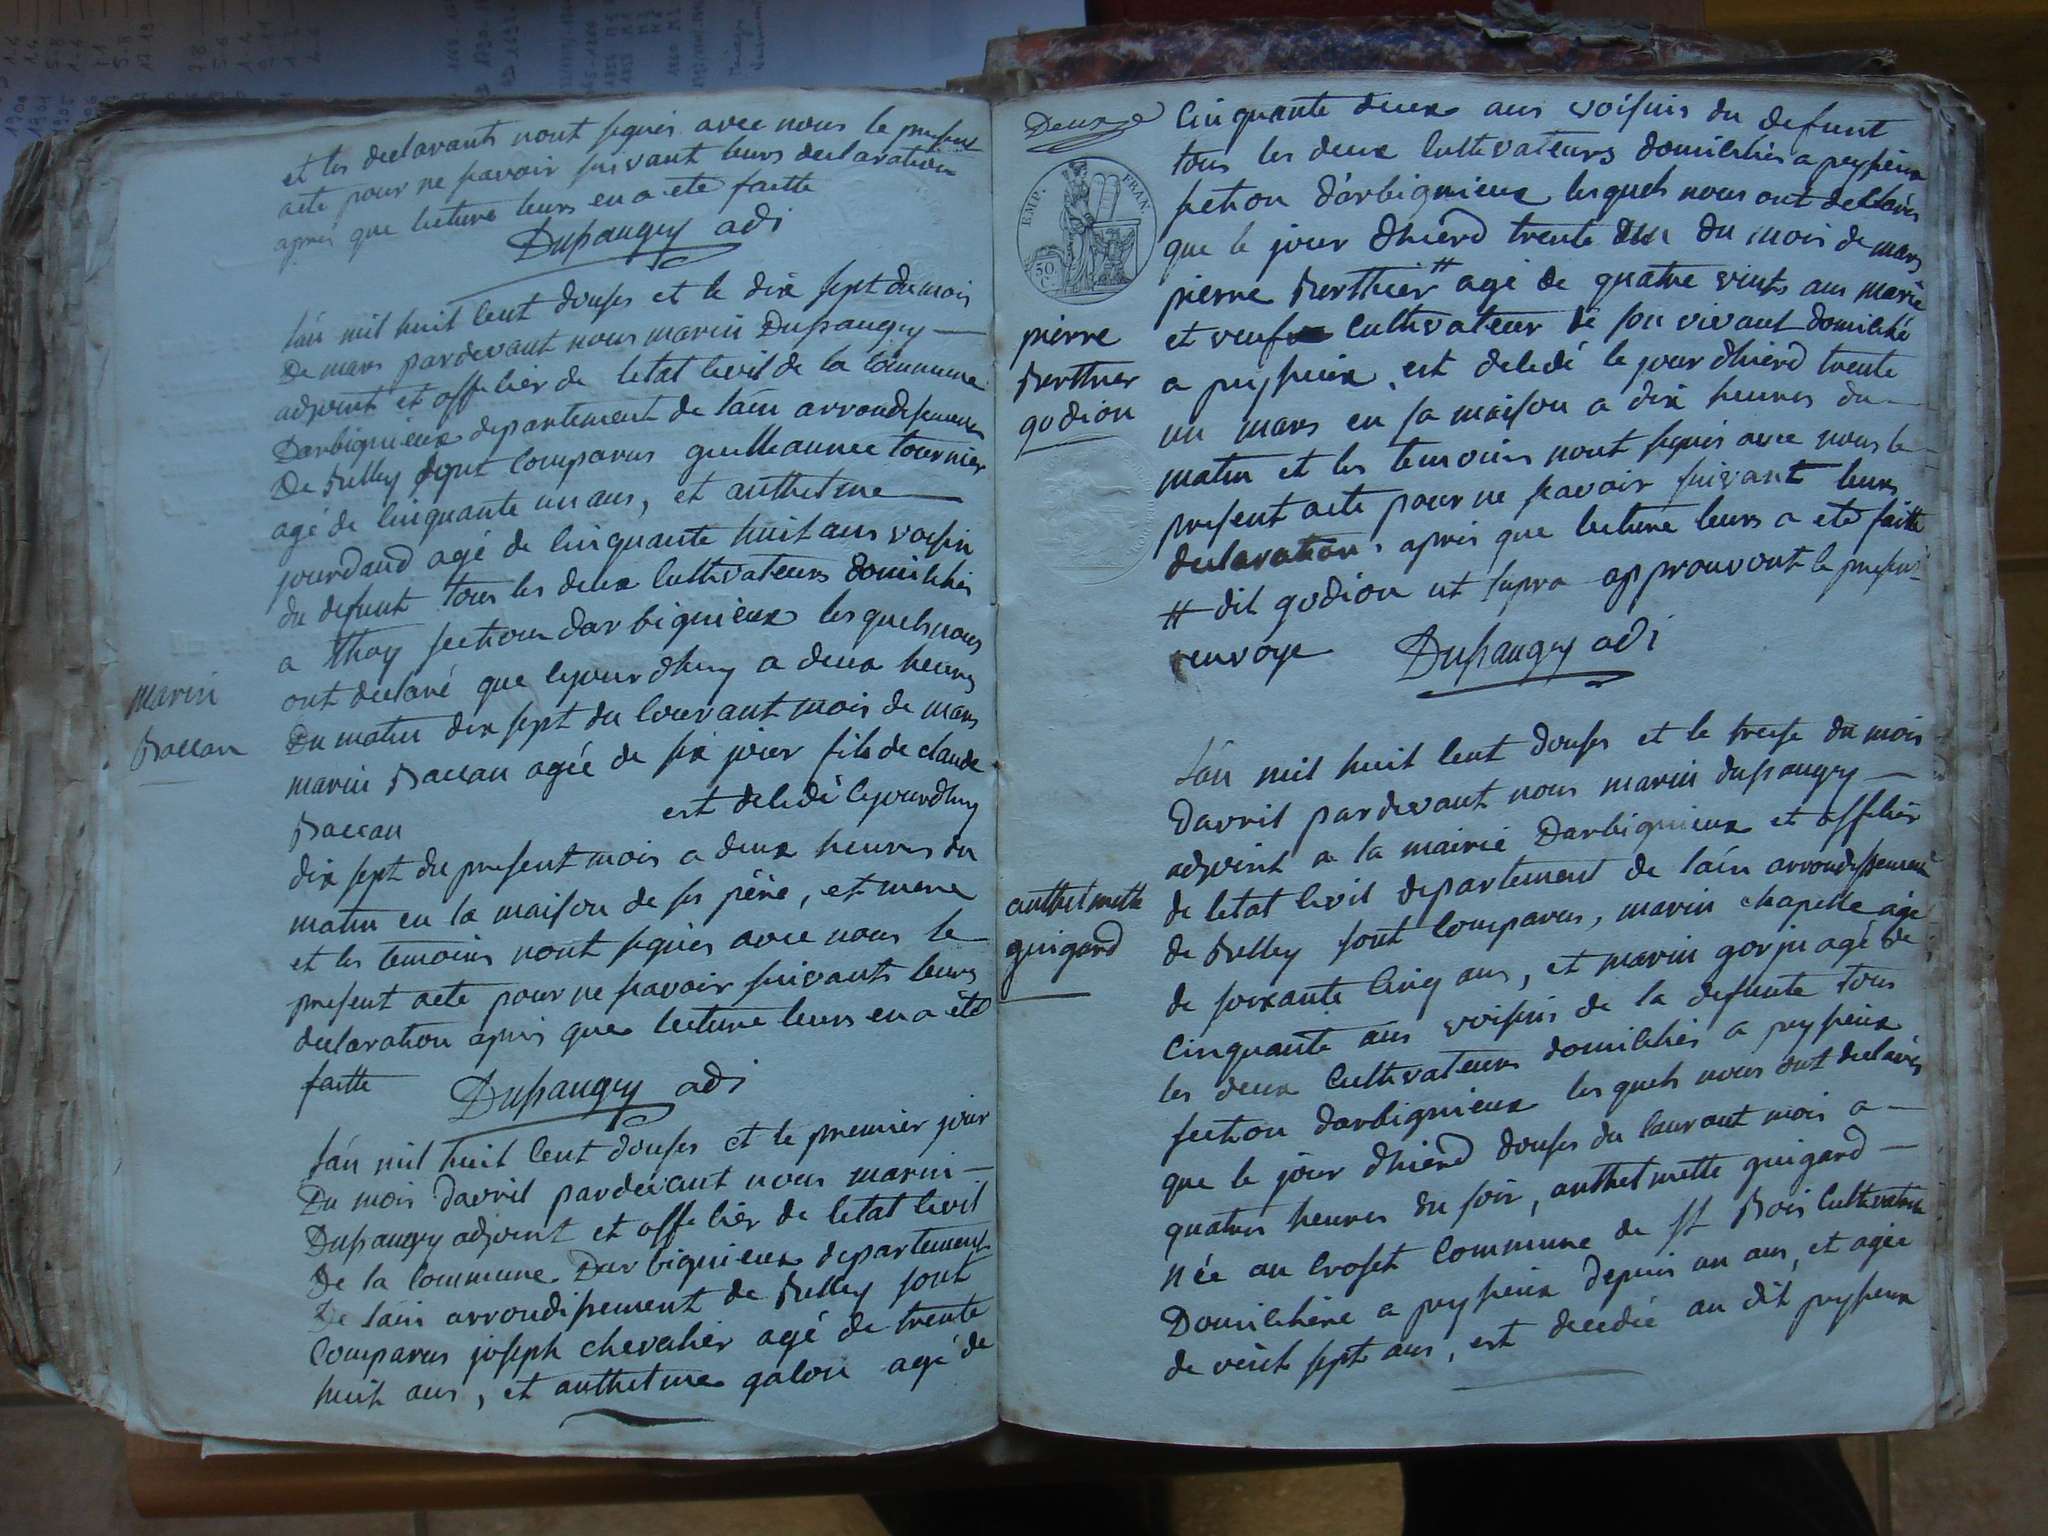 et les declarants nont signés avec nous le present
acte pour ne scavoir suivant leurs declaration
aprés que lecture leurs en a eté faitte
Dupaugey adj
L'án mil huit cent douses et le dix sept du mois
De mars pardevant nous marin Dupaugey
adjoint et officier de letat civil de la commune
Darbignieux departement de láin arrondissement
De Belley sont comparus guilleaumee tournier
agé de cinquante un ans, et anthelme
jourdand agé de cinquante huit ans voisin
du defunt tous les deux cultivateurs domicilies
a thoy section darbignieux les quels nous
ont declaré que cejourdhuy a deux heures
Du matin dix sept du courant mois de mars
marin
marin Baccan agée de six jour fils de claude
Baccan
Baccan est decedé cejourdhuy
dix sept du present mois a deux heures du
matin en la maison de ses père, et mere
et les temoins nont signes avec nous le
present acte pour ne scavoir suivants leurs
declaration aprés que lecture leurs en a été
faitte Dupaugey adj
L'án mil huit cent douses et le premier jour
Du mois davril pardevant nous marin
Dupaugey adjoint et officier de letat civil
De la commune Darbignieux departement
De láin arrondissement de Belley sont
comparus joseph chevalier agé de trente
huit ans, et anthelme galon agé de
Deuxe
EMP. FRAN.
50 C.
cinquante deux ans voisins du defunt
tous les deux cultivateurs domiciliés a peyzieux
section d'arbignieux lesquels nous ont declarés
que le jour dhierd trente un du mois de mars
pierre Berthier # agé de quatre vints ans marié
et veuf cultivateur de son vivant domicilié
pierre
Berthier
godion
a peyzieux, est decedé le jour dhierd trente
un mars en sa maison a dix heures du
matin et les temoins nont signés avec nous le
present acte pour ne scavoir suivant leurs
declaration, aprés que lecture leurs a eté faitte
# dit godion ut supra approuvont le present
renvoye Dupaugey adj
L'án mil huit cent douses et le treise du mois
davril pardevant nous marin dupaugey
adjoint a la mairie Darbignieux et officier
de letat civil departement de láin arrondissement
anthelmette
guigard
de Belley sont comparus, marin chapelle agé
de soixante cinq ans, et marin gorju agé de
cinquante ans voisins de la defunte tous
les deux cultivateurs domiciliés a peyzieux
section darbignieux les quels nous ont declarés
que le jour dhierd douses du courant mois a
quatres heures du soir, anthelmette guigard
née au croset commune de st Bois cultivatrice
Domiciliére a peyzieux depuis un ans, et agée
de veint sept ans, est decedée au dit peyzieux